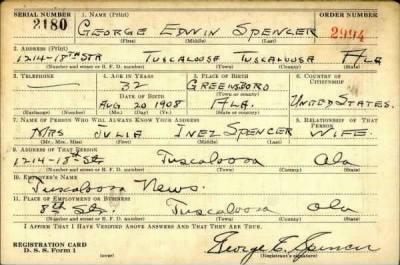 SERIAL NUMBER 1. NAME (Print) ORDER NUMBER
2180 GEORGE EDWIN SPENCER 2994
(First) (Middle) (Last)
2. ADDRESS (Print)
1214-18TH STR TUSCALOOSA TUSCALOOSA ALA
(Number and street or R. F. D. number) (Town) (County) (State)
3. TELEPHONE 4. AGE IN YEARS 5. PLACE OF BIRTH 6. COUNTRY OF CITIZENSHIP
32 GREENSBORO
DATE OF BIRTH (Town or county)
AUG 20 1908 ALA. UNITED STATES.
(Exchange) (Number) (Mo.) (Day) (Yr.) (State or country)
7. NAME OF PERSON WHO WILL ALWAYS KNOW YOUR ADDRESS 8. RELATIONSHIP OF THAT PERSON
MRS JULIA INEZ SPENCER WIFE.
(Mr., Mrs., Miss) (First) (Middle) (Last)
9. ADDRESS OF THAT PERSON
1214-18th St. Tuscaloosa Ala
(Number and street or R. F. D. number) (Town) (County) (State)
10. EMPLOYER'S NAME
Tuscaloosa News.
11. PLACE OF EMPLOYMENT OR BUSINESS
8th St. Tuscaloosa Ala
(Number and street or R. F. D. number) (Town) (County) (State)
I AFFIRM THAT I HAVE VERIFIED ABOVE ANSWERS AND THAT THEY ARE TRUE.
REGISTRATION CARD George E. Spencer
D. S. S. Form 1 (Registrant's signature)